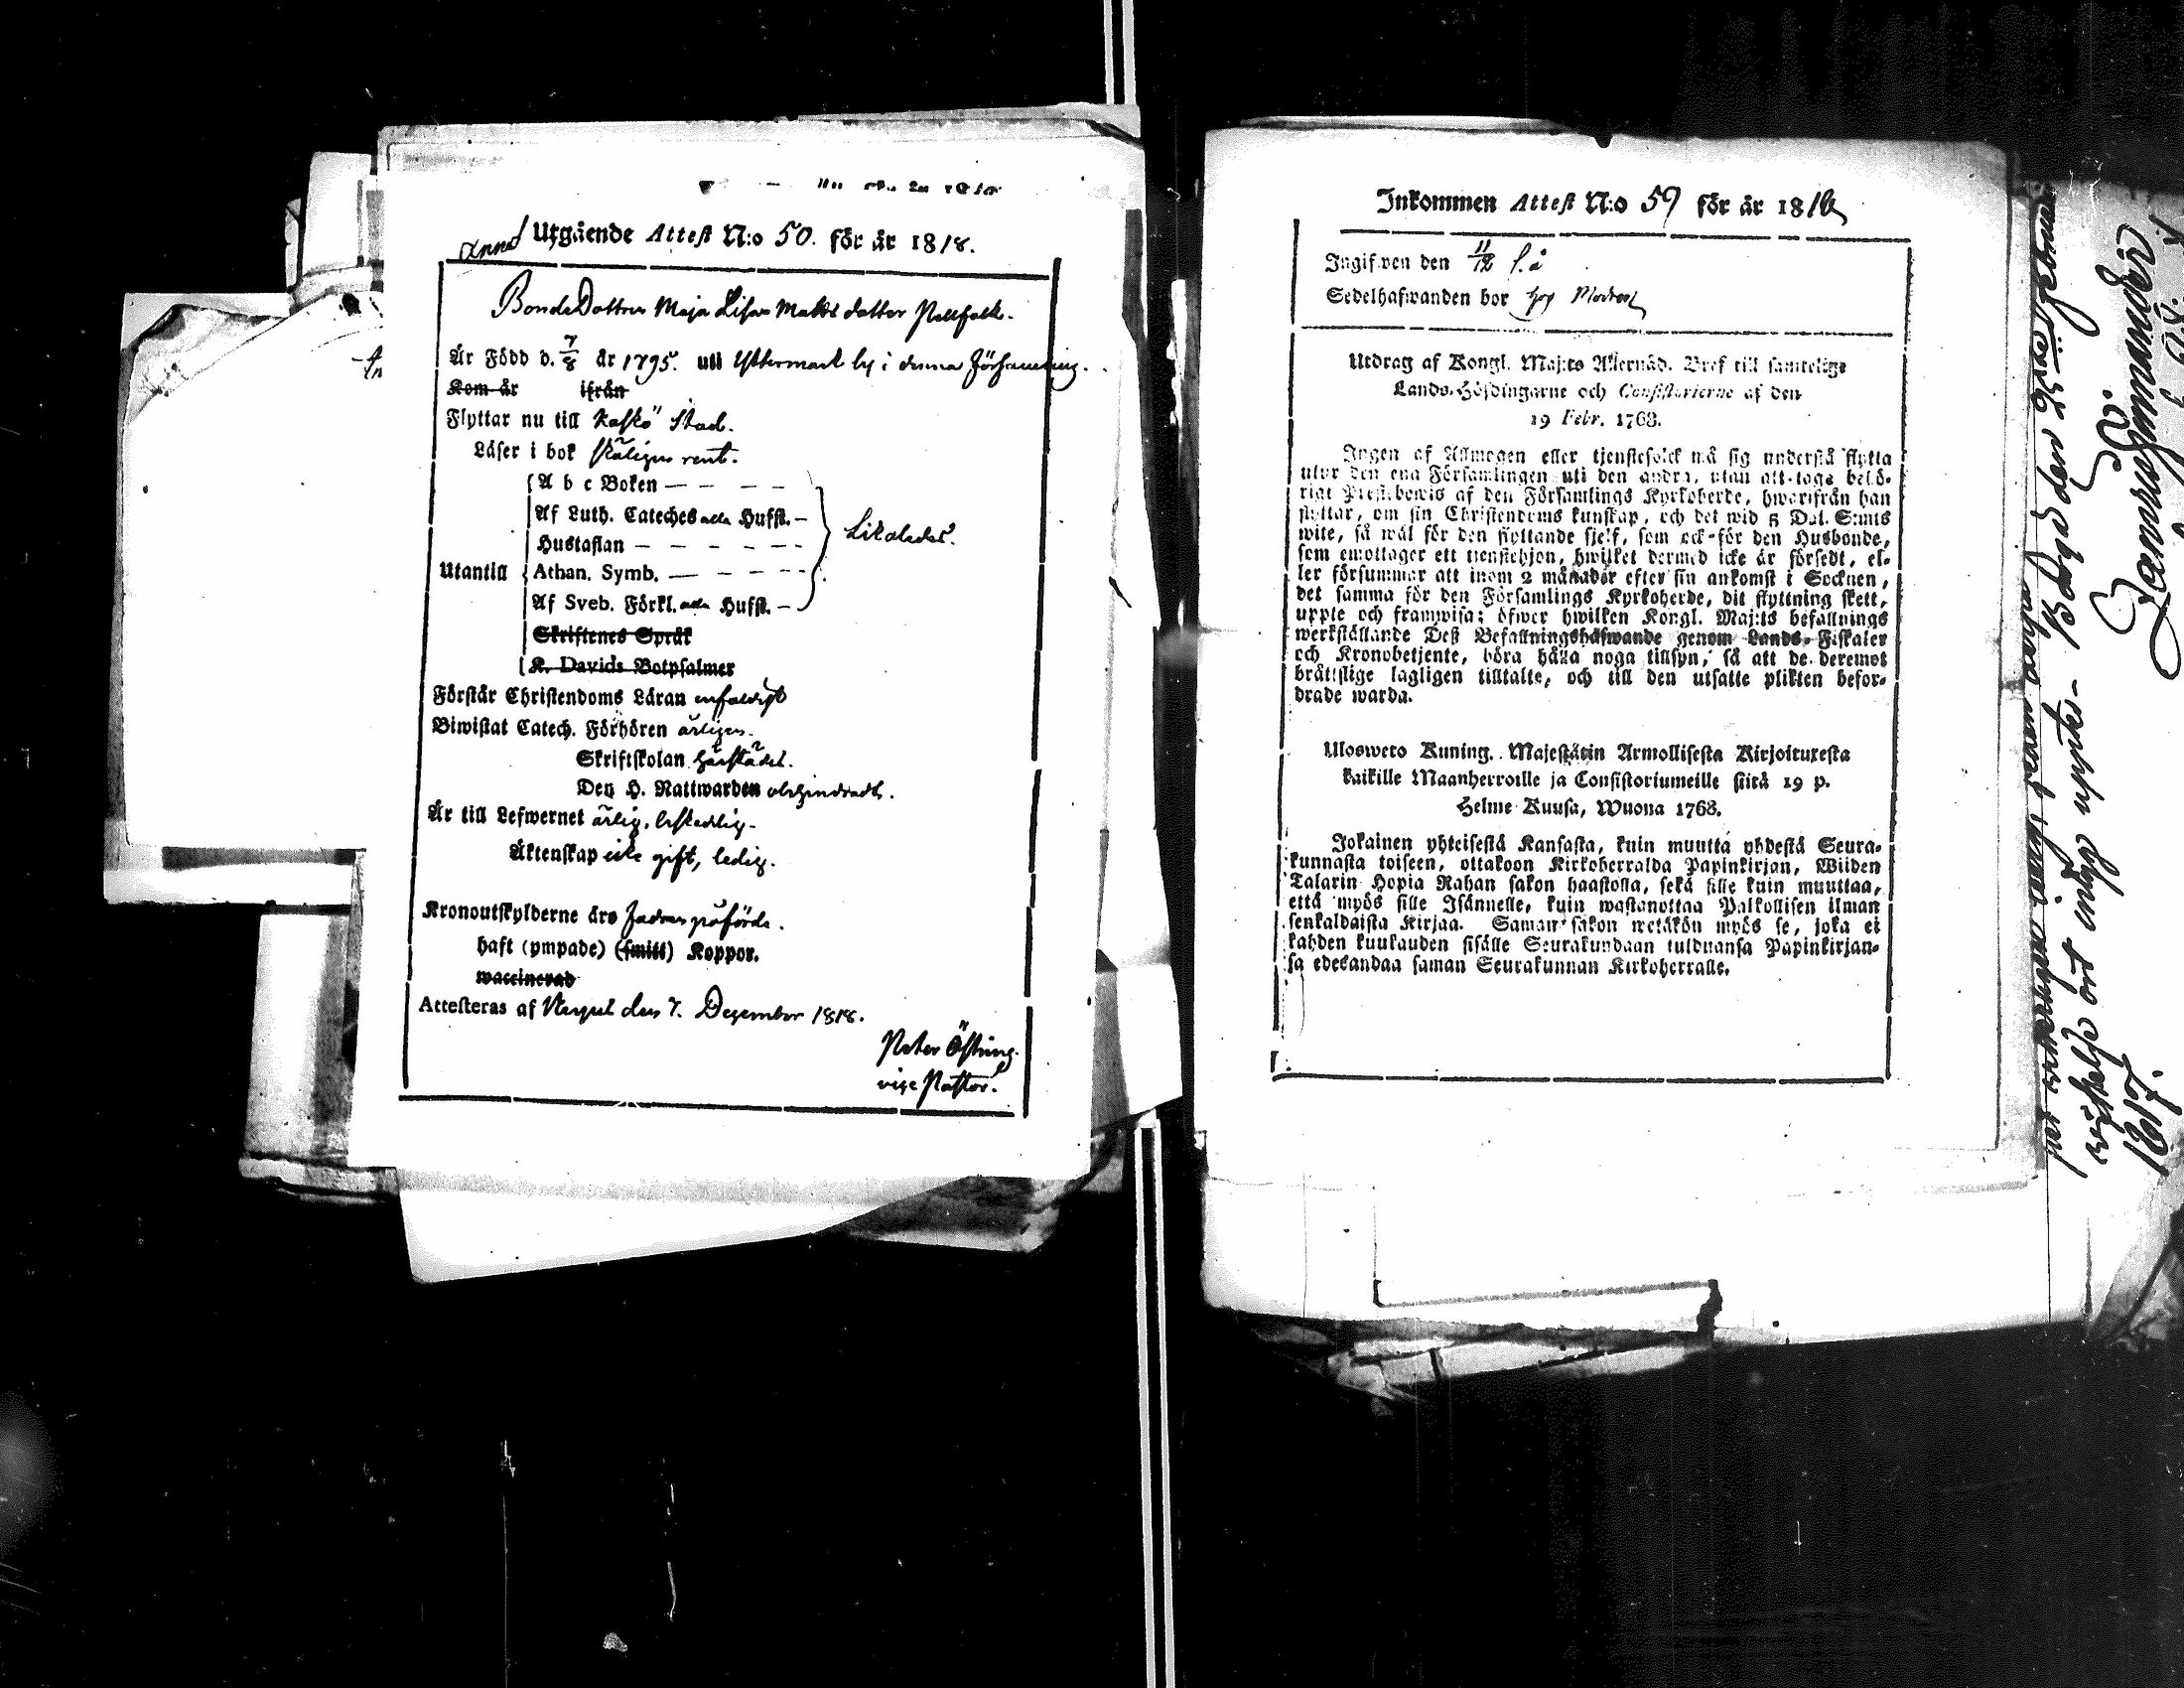 Utgående Attest N:o 50. för år 1818.
Anna
BondeDottren Maja Lisa Matts dotter Pellfolk.
Är Född d. 7/8 år 1795. uti Yttermark by i denna Församling.
Kom år ifrån
Flyttar nu till Kaskö Stad.
Läser i bok rent.
Utantill
A b c Boken — — — —
Af Luth. Cateches alla Hufst. —
Hustaflan — — — — —
Athan. Symb. — — — — —
Af Sveb. Förkl. alla Hufst. —
Likaledes.
Skriftenes Språk
K. Davids Botpsalmer
Förstår Christendoms Läran enfaldigt
Biwistat Catech. Förhören årligen.
Skriftskolan härstädes.
Den H. Nattwarden obehindradt.
Är till Lefwernet ärlig, beskedlig.
Äktenskap icke gift, ledig.
Kronoutskylderne äro Fadren påförde.
haft (ympade) (smitt) Koppor.
waccinerad
Attesteras af Nerpes den 7. December 1818.
Peter Östring.
vice Pastor.
Inkommen Attest N:o 59 för år 1818
Ingifwen den 11/12 s. å
Sedelhafwanden bor hos
Utdrag af Kongl. Maj:ts Allernåd. Bref till samtelige
Lands-Höfdingarne och Consistorierne af den
19 Febr. 1768.
Ingen af Allmogen eller tjenstefolck må sig understå flytta
utur den ena Församlingen uti den andra, utan att taga behö-
rigt Prestebewis af den Församlings Kyrkoherde, hwarifrån han
flyttar, om sin Christendoms kunskap, och det wid 5 Dal. S:mts
wite, så wäl för den flyttande sjelf, som ock för den Husbonde,
som emottager ett tjenstehjon, hwilket dermed icke är försedt, el-
ler försummar att inom 2 månader efter sin ankomst i Socknen,
det samma för den Församlings Kyrkoherde, dit flyttning skett,
uppte och framwisa; öfwer hwilken Kongl. Maj:ts befallnings
werkställande Deß Befallningshafwande genom Lands-Fiskaler
och Kronobetjente, böra hålla noga tillsyn, så att de deremot
bråttslige lagligen tilltalte, och till den utsatte plikten befor-
drade warda.
Ulosweto Kuning. Majestätin Armollisesta Kirjoituxesta
kaikille Maanherroille ja Consistoriumeille siitä 19 p.
Helme Kuusa, Wuona 1768.
Jokainen yhteisestä Kansasta, kuin muutta yhdestä Seura-
kunnasta toiseen, ottakoon Kirkoherralda Papinkirjan, Wiiden
Talarin Hopia Rahan sakon haastolla, sekä sille kuin muuttaa,
että myös sille Isännelle, kuin wastanottaa Palkollisen ilman
senkaldaista Kirjaa. Saman sakon wetäkön myös se, joka ei
kahden kuukauden sisälle Seurakundaan tulduansa Papinkirjan-
sa edesandaa saman Seurakunnan Kirkoherralle.
1817.